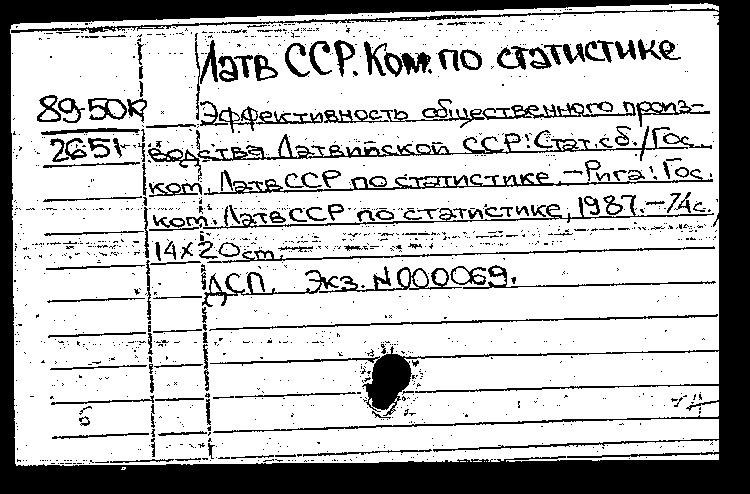 Латв ССР. Ком. по статистике
89-50к Эффективность общественного произ-
2651 водства Латвийской ССР: Стат. сб. / Гос.
ком. Латв ССР по статистике. - Рига: Гос.
ком. Латв ССР по статистике, 1987. - 74 с.;
14x20 cm.
ДСП. Экз. N000069.
б